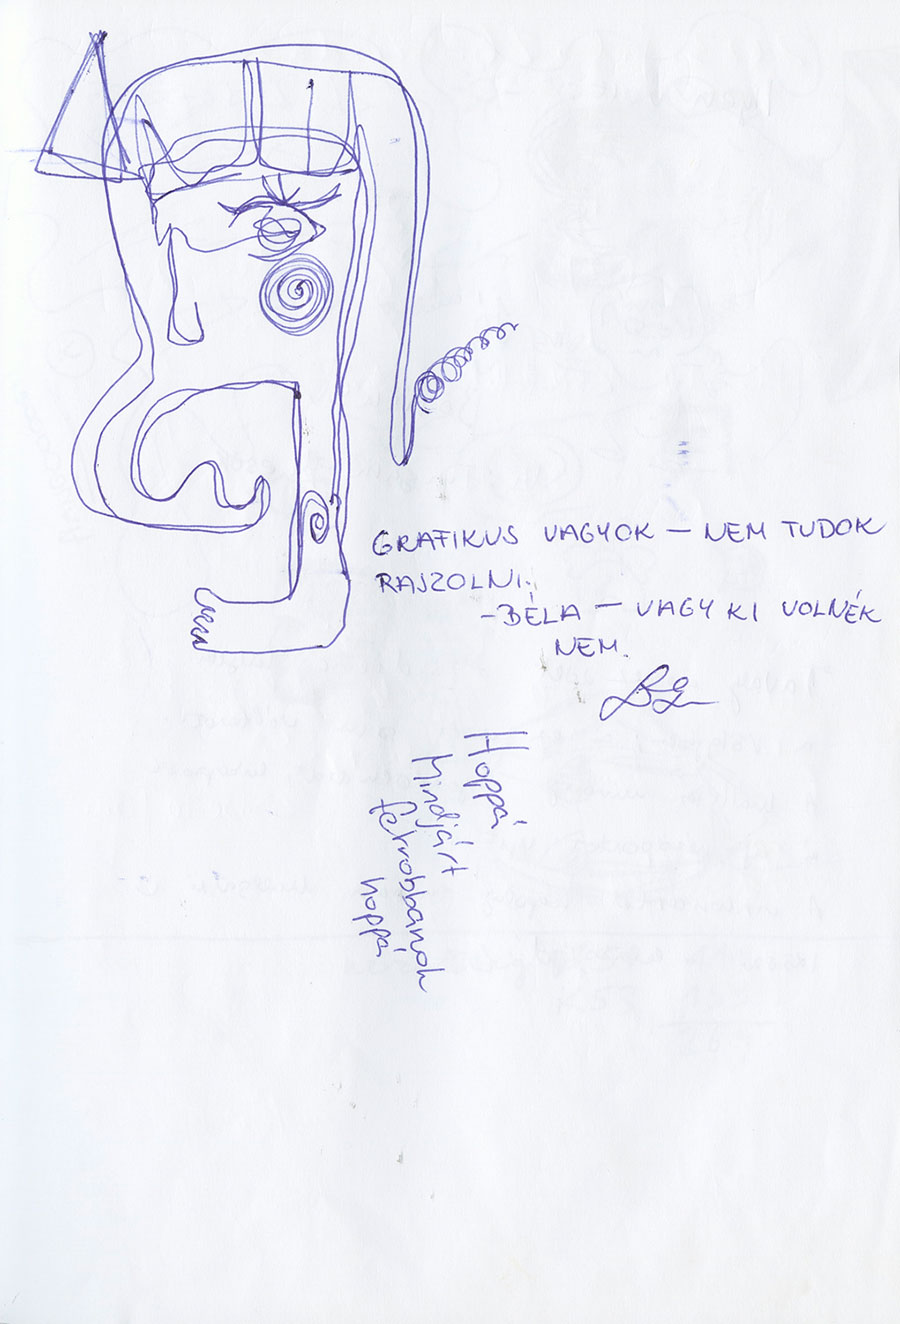 GRAFIKUS VAGYOK — NEM TUDOK
RAJZOLNI.
-BÉLA — VAGY KI VOLNÉK
NEM.
Hoppá
Mindjárt
felrobbanok
hoppá